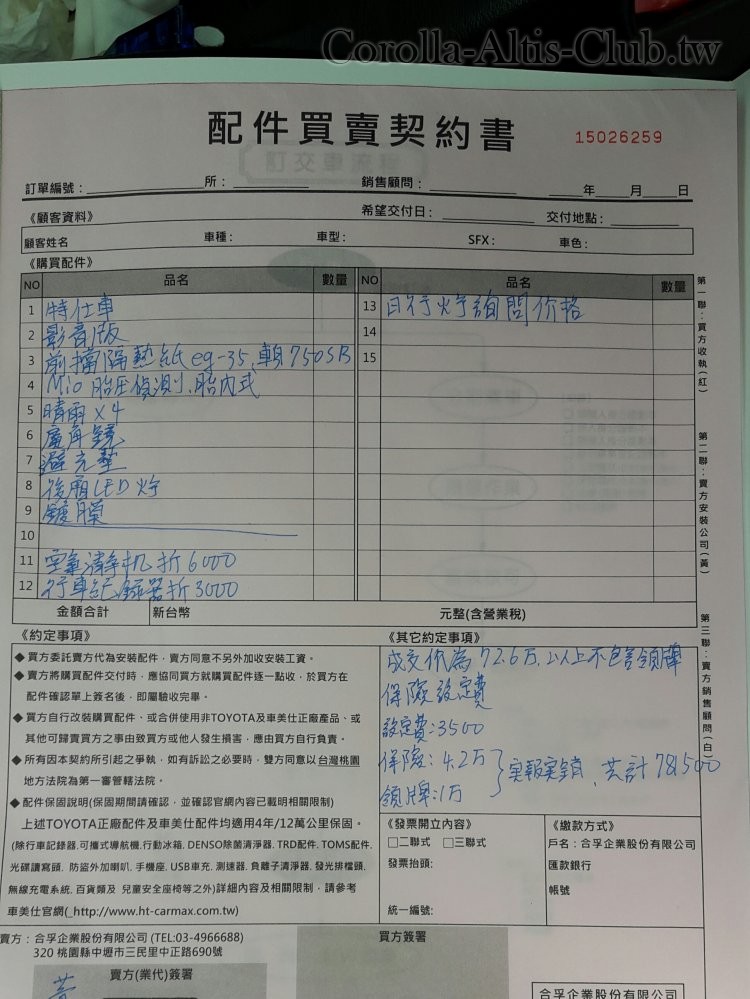 Corolla-Altis-Club.tw
配件買賣契約書
15026259
訂單編號： 所： 銷售顧問： 年 月 日
《顧客資料》 希望交付日： 交付地點：
顧客姓名 車種： 車型： SFX： 車色：
《購買配件》
NO 品名 數量 NO 品名 數量
1 特仕車 13 日行灯詢問价格
2 影音版 14
3 前擋隔熱紙eg-35, 車身750SB 15
4 Mio 胎压偵測、胎內式
5 晴雨x4
6 廣角鏡
7 避光墊
8 後廂LED灯
9 鍍膜
10
11 空氣清净机折6000
12 行車紀錄器折3000
金額合計 新台幣 元整(含營業稅)
第一聯：買方收執(紅)
第二聯：賣方安裝公司(黃)
第三聯：賣方銷售顧問(白)
《約定事項》
◆買方委託賣方代為安裝配件，賣方同意不另外加收安裝工資。
◆賣方將購買配件交付時，應協同買方就購買配件逐一點收，於買方在
配件確認單上簽名後，即屬驗收完畢。
◆買方自行改裝購買配件、或合併使用非TOYOTA及車美仕正廠產品、或
其他可歸責買方之事由致買方或他人發生損害，應由買方自行負責。
◆所有因本契約所引起之爭執，如有訴訟之必要時，雙方同意以台灣桃園
地方法院為第一審管轄法院。
◆配件保固說明(保固期間請確認，並確認官網內容已載明相關限制)
上述TOYOTA正廠配件及車美仕配件均適用4年/12萬公里保固。
(除行車記錄器,可攜式導航機,行動冰箱, DENSO除菌清淨器, TRD配件, TOMS配件,
光碟讀寫頭, 防盜外加喇叭, 手機座, USB車充, 測速器, 負離子清淨器, 發光排檔頭,
無線充電系統, 百貨類及 兒童安全座椅等之外)詳細內容及相關限制，請參考
車美仕官網(_http://www.ht-carmax.com.tw)
《其它約定事項》
成交价為72.6万, 以上不包含領牌
保險設定費
設定費：3500
保險：4.2万
領牌：1万
实報实銷、共計781500
《發票開立內容》
□二聯式 □三聯式
發票抬頭：
統一編號：
《繳款方式》
戶名：合孚企業股份有限公司
匯款銀行
帳號
賣方：合孚企業股份有限公司 (TEL:03-4966688)
320 桃園縣中壢市三民里中正路690號
賣方(業代)簽署
買方簽署
合孚企業股份有限公司